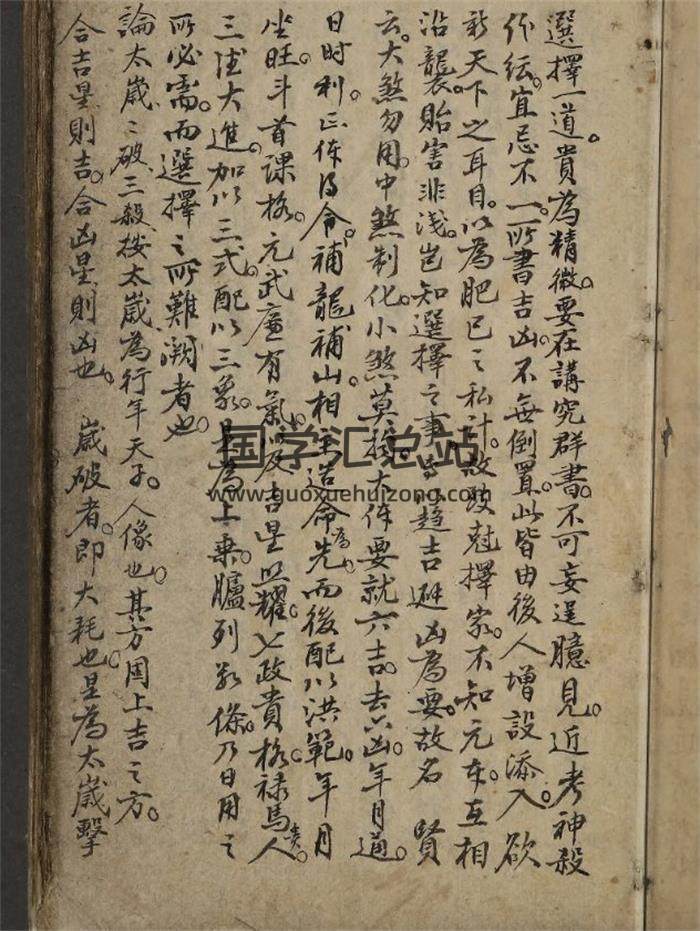 選擇一道。貴為精微。要在講究群書。不可妄逞臆見。近考神殺
作紜。宜忌不一。所書吉凶。不無倒置。此皆由後人增設添入。欲
新天下之耳目。以為肥己之私計。故致尅擇家。不知元本。互相
沿襲。貽害非淺。豈知選擇之事。趨吉避凶為要。故名 賢
云。大煞勿用。中煞制化。小煞莫大体要就六吉。去六凶。年月通。
日时利。正体得令。補龍補山。相主造命為先。而後配以洪範。年月
坐旺。斗首課格。元武廉有氣。以及吉星照耀。七政貴格。祿馬貴人。
三德大進。加以三式。配以三象。為上乘。臚列数條。乃日用之
所必需。而選擇之所難闕者也。
論太歲歲破三殺。按太歲為行年天子。人像也。其方固上吉之方。
合吉星則吉。合凶星則凶也。 歲破者。即大耗也。是為太歲擊
国学汇总站
www.guoxuehuizong.com